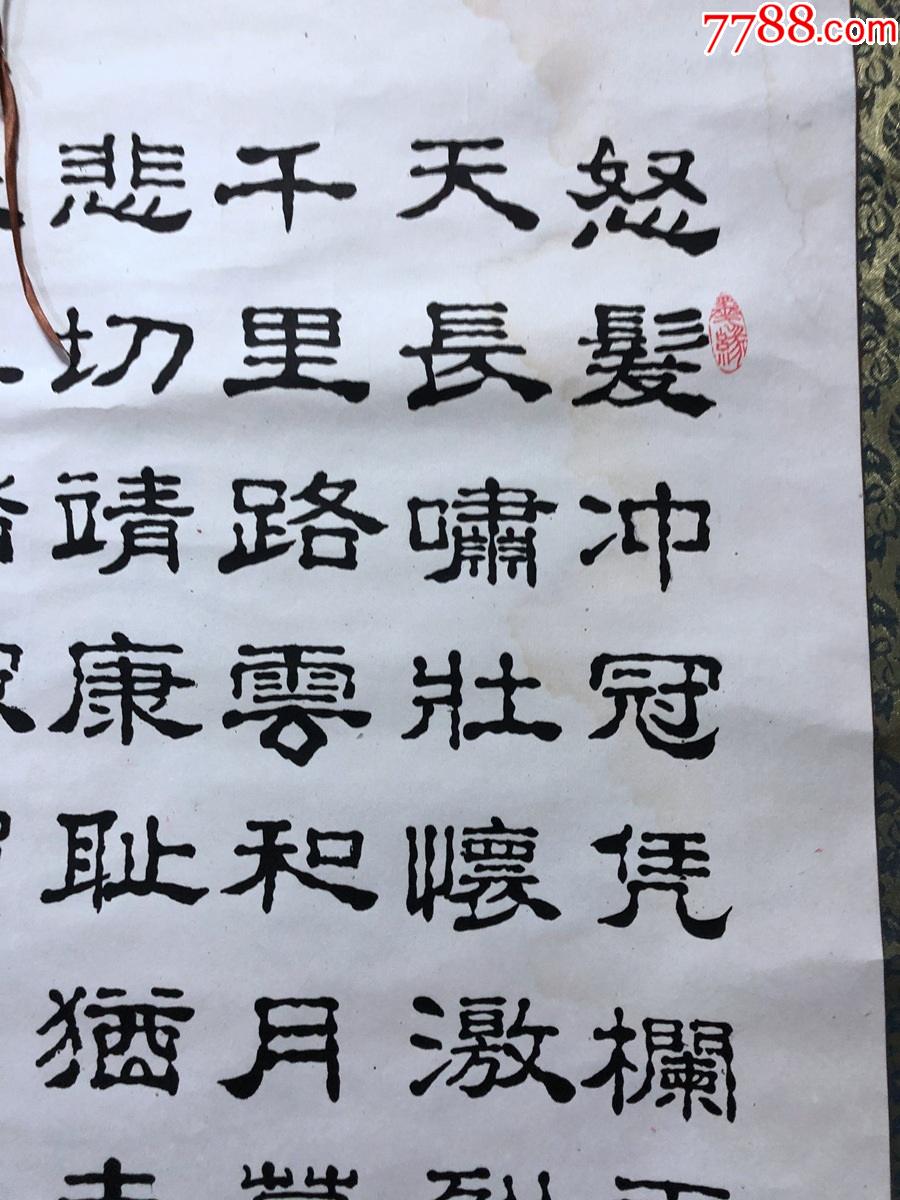 7788.com
怒髮冲冠凭欄
天長嘯壯懷激
千里路雲和月
悲切靖康耻猶
墨緣